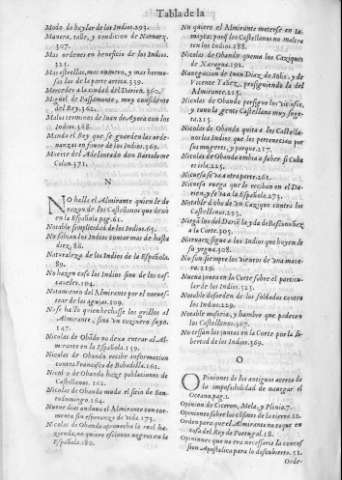 Tabla de la
Modo de baylar de los Indios.293.
Manera, talle, y condicion de
307.
Mas ordenes en beneficio de los Indios.
321.
Mas estrellas, mas numero, y mas hermosas
las de la parte artica.339.
Mercedes a la ciudad del Darien.362.
Miguel de Passamonte, muy
del Rey.362.
Malos terminos de Iuan de Ayora con los
Indios.368.
Manda el Rey que se guarden las ordenanças
en fauor de los Indios.369.
Muerte del Adelantado don Bartolome
Colon.371.
N
No halla el Almirante quien le de
razon de los Castellanos que dexò
en la Española pag.61.
Notable simplicidad de los Indios.65.
No sabian los Indios contar mas de hasta
diez.88.
Naturaleza de los Indios de la Española.
89.
No hazen caso los Indios sino de los cascaueles.104.
del Almirante por el
de las agujas.109.
No se halla quien echasse los grillos al
Almirante, sino vn cozinero suyo.
147.
Nicolas de Obando no dexa entrar al Almirante
en la Española.159.
Nicolas de Obando recibe informacion
contra Francisco de Bobadilla.161.
Nicolas de Obando haze poblaciones de
Castellanos.162.
Nicolas de Obando muda el sitio de Santo
domingo.164.
Nueue dias anduuo el Almirante con tormenta
sin esperança de vida.175.
Nicolas de Obando aprouecha la real hazienda,
no quiere oficiales negros en la
Española.180.
No quiere el Almirante meterse en
y los Castellanos no molesten
los Indios.188.
Nicolas de Obando quema los Caziques
de Xaragua.192.
Nauegacion de Iuan Diez de Solis, y de
Vicente Yañez, prosiguiendo la del
Almirante.215.
Nicolas de Obando persigue los viciosos,
y tanto la gente Castellana muy sugeta.215.
Nicolas de Obando quita a los Castellanos
los Indios que les pertenecian por
sus mugeres, y porque.217.
Nicolas de Obando embia a saber si Cuba
es isla.225.
Nicuesa se va a otra parte.261.
Nicuesa ruega que le reciban en el Darien,
y se va a la Española.273.
Notable dicho de vn Cazique contra los
Castellanos.292.
los del Darien la yda de Bastimentos
a la Corte.305.
Naruaez sigue a los Indios que huyen de
su yegua.308.
No son siempre los vientos de vna manera.319.
Nueua junta en la Corte sobre el particular
de los Indios.325.
Notable desorden de los soldados contra
los Indios.329.
Notable miseria, y hambre que padecen
los Castellanos.367.
No cessan las juntas en la Corte por la libertad
de los Indios.369.
O
Opiniones de los antiguos acerca de
la impossibilidad de nauegar el
Oceano.pag.1.
Opinion de Ciceron, Mela, y Plinio.7.
Opiniones sobre los clismos de la tierra.12.
Orden para que el Almirante no toque en
cosa del Rey de Portugal.18.
Opiniones que no era necessaria la concession
Apostolica para lo descubierto.52.
Orde-